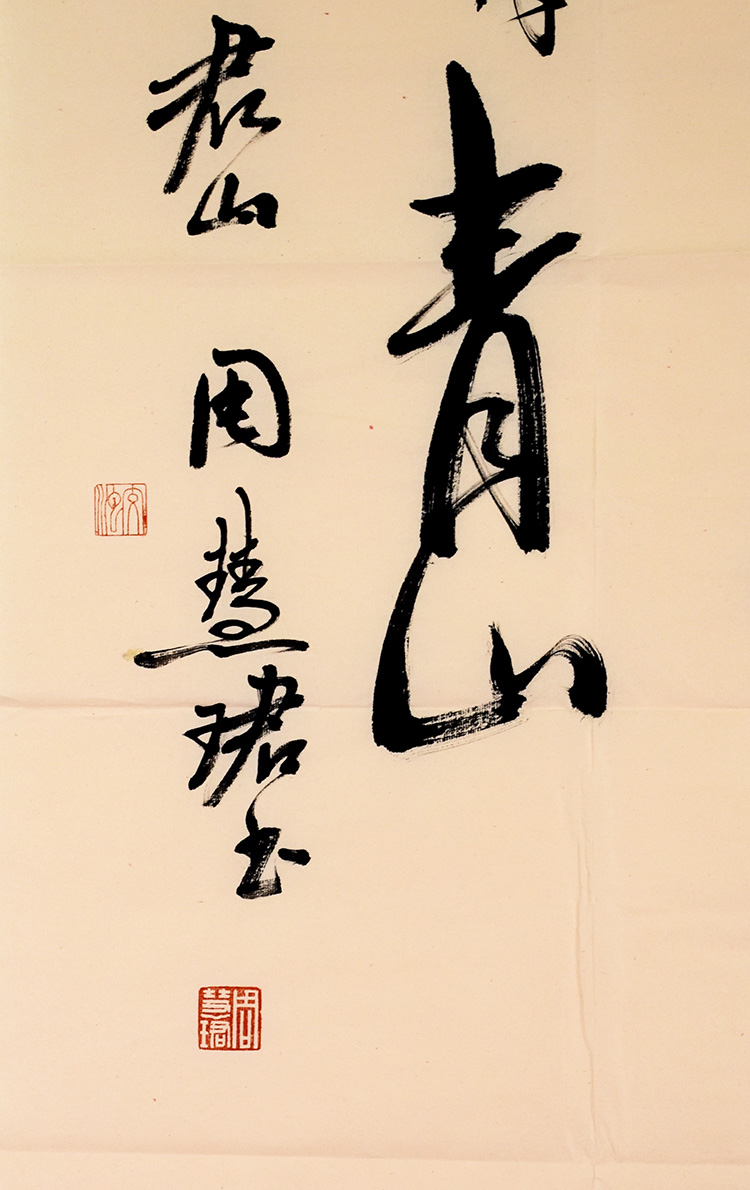 青山
君山 周慧珺书
周慧珺